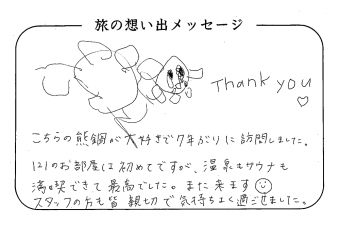 旅の想い出メッセージ
Thank you
こちらの熊鋼が大好きで7年ぶりに訪問しました。
121のお部屋は初めてですが、温泉もサウナも
満喫できて最高でした。また来ます
スタッフの方も皆親切で気持ちよく過ごせました。